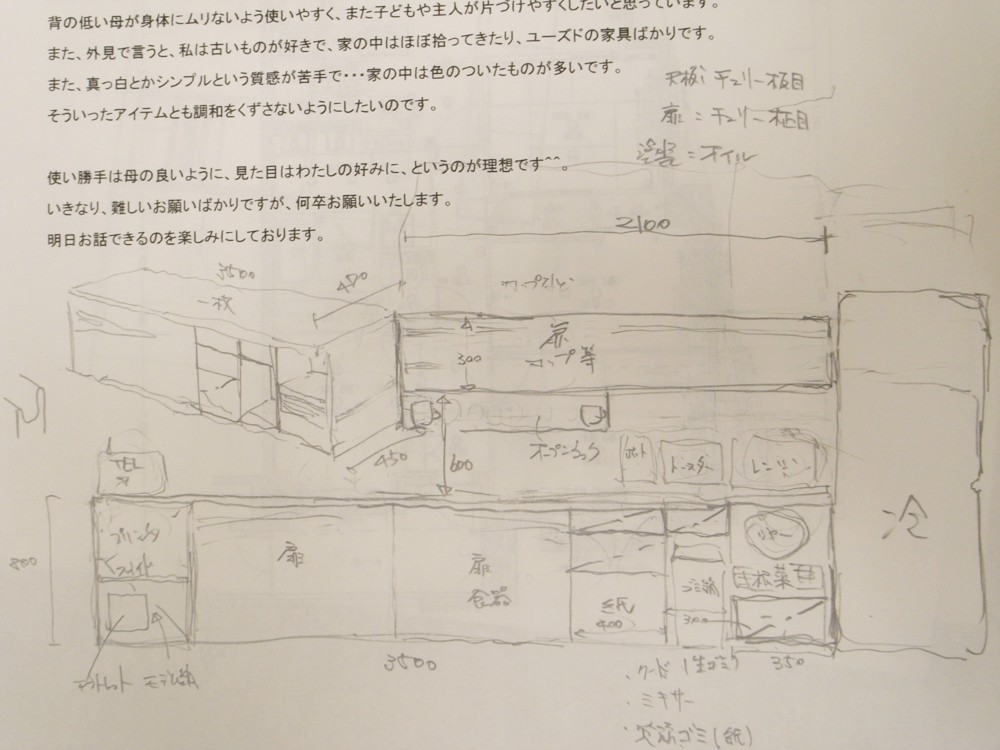 背の低い母が身体にムリないよう使いやすく、また子どもや主人が片づけやすくしたいと思っています。
また、外見で言うと、私は古いものが好きで、家の中はほぼ拾ってきたり、ユーズドの家具ばかりです。
また、真っ白とかシンプルという質感が苦手で・・・家の中は色のついたものが多いです。
そういったアイテムとも調和をくずさないようにしたいのです。
天板: チェリー板目
扉 = チェリー柾目
塗装 = オイル
使い勝手は母の良いように、見た目はわたしの好みに、というのが理想です^^。
いきなり、難しいお願いばかりですが、何卒お願いいたします。
明日お話できるのを楽しみにしております。
2100
3500
450
一枚
扉
コップ等
300
450
600
オープンラック
ポット
トースター
レンジ
TEL
冷
800
プリンタ
扉
扉
食器
紙
400
ゴミ箱
300
3500
350
ミキサー